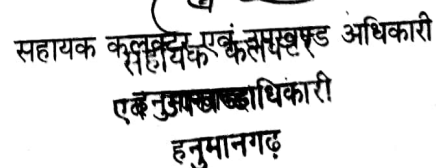 सहायक कलक्टर एवं उपखण्ड अधिकारी
सहायक कलक्टर
एवं उपखण्डाधिकारी
हनुमानगढ़